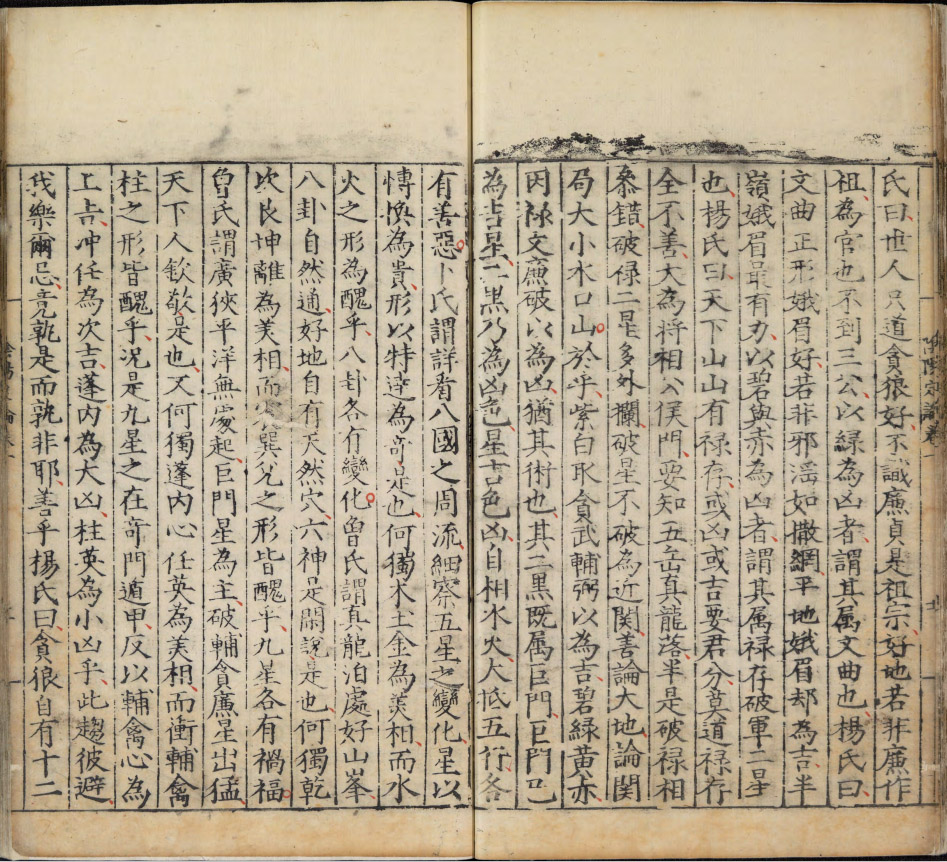 氏曰世人只道貪狼好不識廉貞是祖宗好地若非廉作
祖為官也不到三公以緑為凶者謂其属文曲也楊氏曰
文曲正形娥眉好若非邪滛如撒網平地娥眉却為吉半
嶺娥眉最有力以碧與赤為凶者謂其属禄存破軍二星
也楊氏曰天下山山有禄存或凶或吉要君分莫道禄存
全不善大為将相公侯門要知五岳真龍落半是破禄相
叅錯破禄二星多外攔破星不破為近関善論大地論関
局大小水口山於乎紫白取貪武輔弼以為吉碧緑黄赤
因禄文廉破以為凶猶其術也其二黒既属巨門巨門已
為吉星二黒乃為凶色星吉色凶自相水火大抵五行各
有善惡卜氏謂詳看八國之周流細察五星之變化星以
慱換為貴形以特逹為竒是也何獨木土金為美相而水
火之形為醜乎八卦各有變化曾氏謂真龍泊處好山峯
八卦自然通好地自有天然穴六神是閑說是也何獨乾
坎艮坤離為美相而震巽兌之形皆醜乎九星各有禍福
曾氏謂廣狹平洋無處起巨門星為主破輔貪廉星出猛
天下人欽敬是也又何獨蓬内心任英為美相而衝輔禽
柱之形皆醜乎况是九星之在竒門遁甲反以輔禽心為
上吉冲任為次吉蓬内為大凶柱英為小凶乎此趨彼避
我樂爾忌竟孰是而孰非耶善乎楊氏曰貪狼自有十二